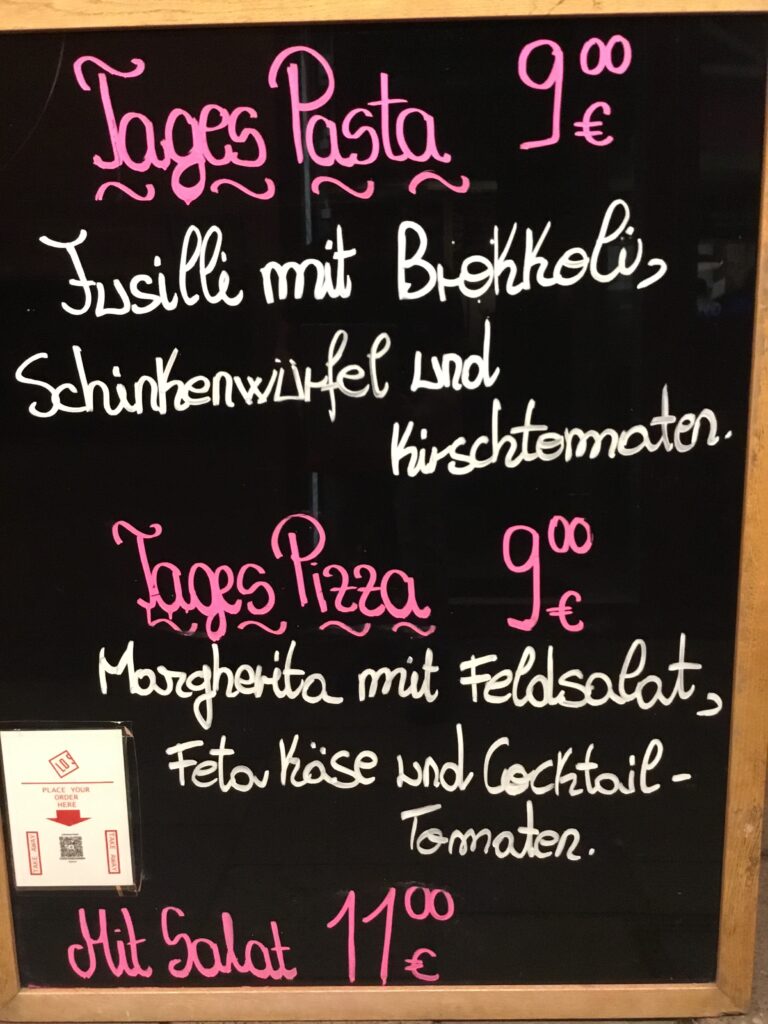 Tages Pasta 9,00 €
Fusilli mit Brokkoli,
Schinkenwürfel und
Kirschtomaten.
Tages Pizza 9,00 €
Margherita mit Feldsalat,
Feta Käse und Cocktail-
Tomaten.
PLACE YOUR
ORDER
HERE
TAKE AWAY
TAKE AWAY
Mit Salat 11,00 €